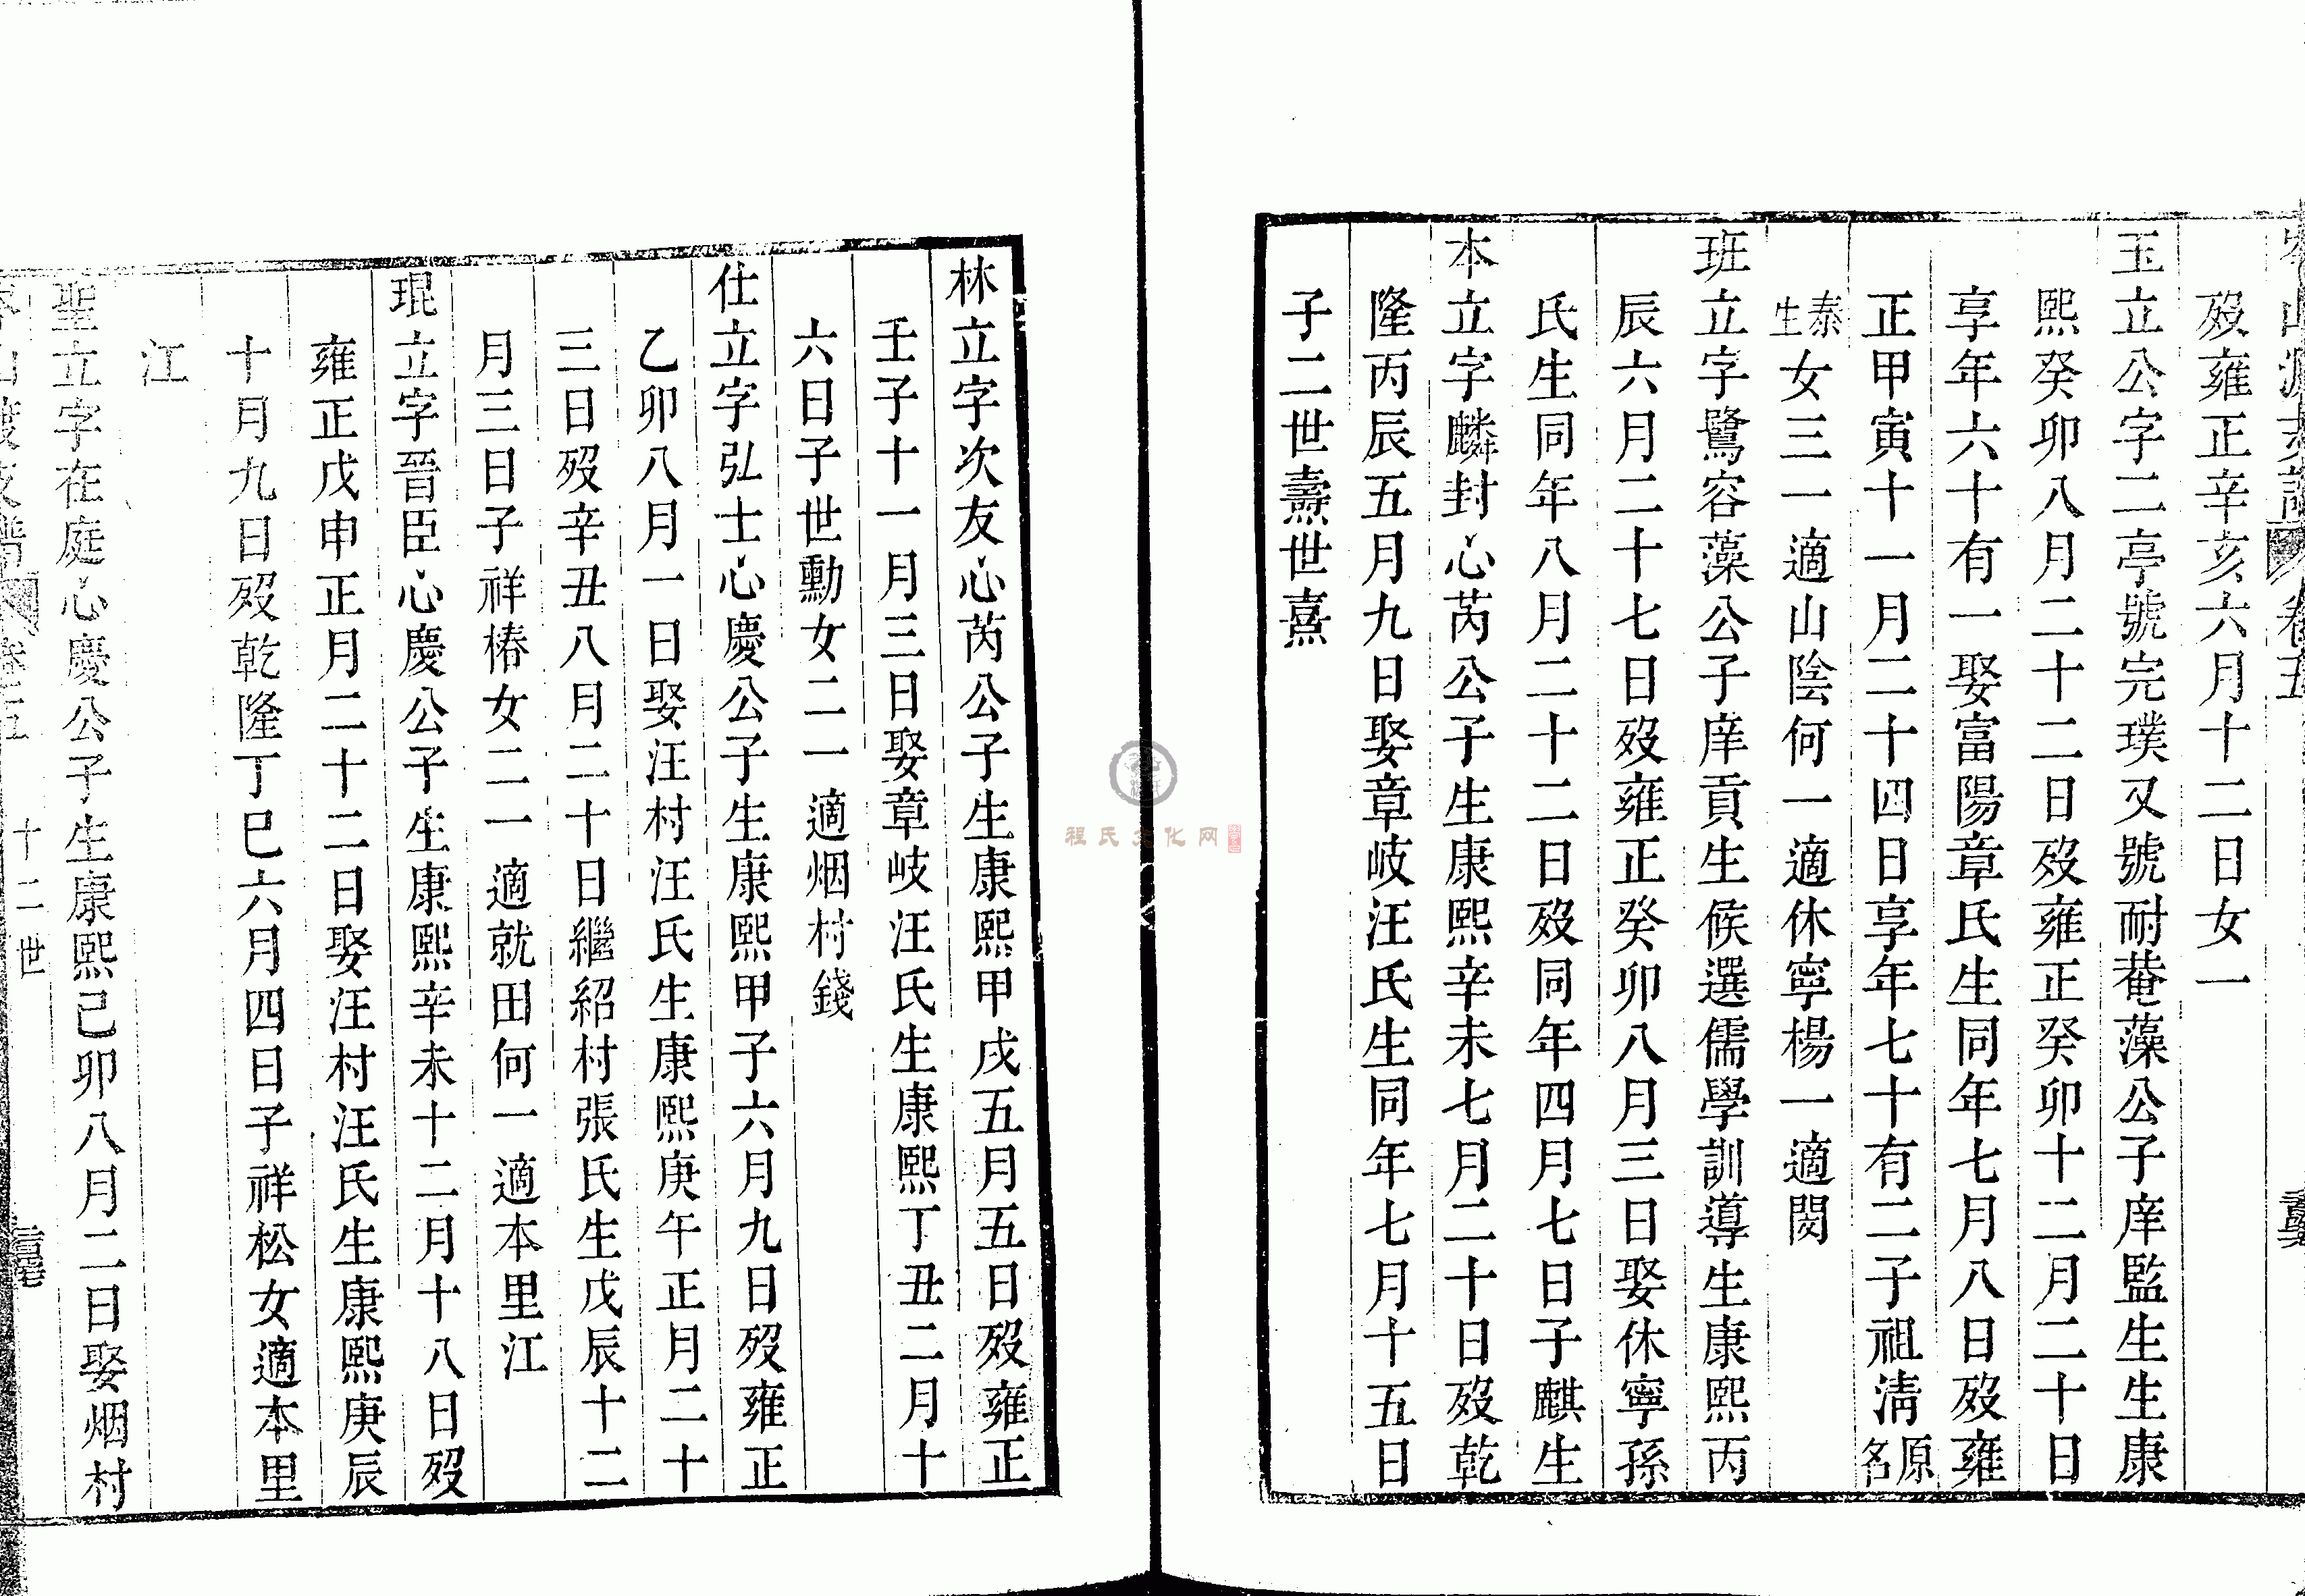 歿雍正辛亥六月十二日女一
玉立公字二亭號完璞又號耐菴藻公子庠監生生康
熙癸卯八月二十二日歿雍正癸卯十二月二十日
享年六十有一娶富陽章氏生同年七月八日歿雍
正甲寅十一月二十四日享年七十有二子祖淸原名
泰生女三一適山陰何一適休寧楊一適閔
班立字鷺容藻公子庠貢生候選儒學訓導生康熙丙
辰六月二十七日歿雍正癸卯八月三日娶休寧孫
氏生同年八月二十二日歿同年四月七日子麒生
本立字麟封心芮公子生康熙辛未七月二十日歿乾
隆丙辰五月九日娶章岐汪氏生同年七月十五日
子二世燾世熹
林立字次友心芮公子生康熙甲戌五月五日歿雍正
壬子十一月三日娶章岐汪氏生康熙丁丑二月十
六日子世勳女二一適烟村錢
仕立字弘士心慶公子生康熙甲子六月九日歿雍正
乙卯八月一日娶汪村汪氏生康熙庚午正月二十
三日歿辛丑八月二十日繼紹村張氏生戊辰十二
月三日子祥椿女二一適就田何一適本里江
琨立字晉臣心慶公子生康熙辛未十二月十八日歿
雍正戊申正月二十二日娶汪村汪氏生康熙庚辰
十月九日歿乾隆丁巳六月四日子祥松女適本里
江
聖立字在庭心慶公子生康熙己卯八月二日娶烟村
十二世
程氏文化网